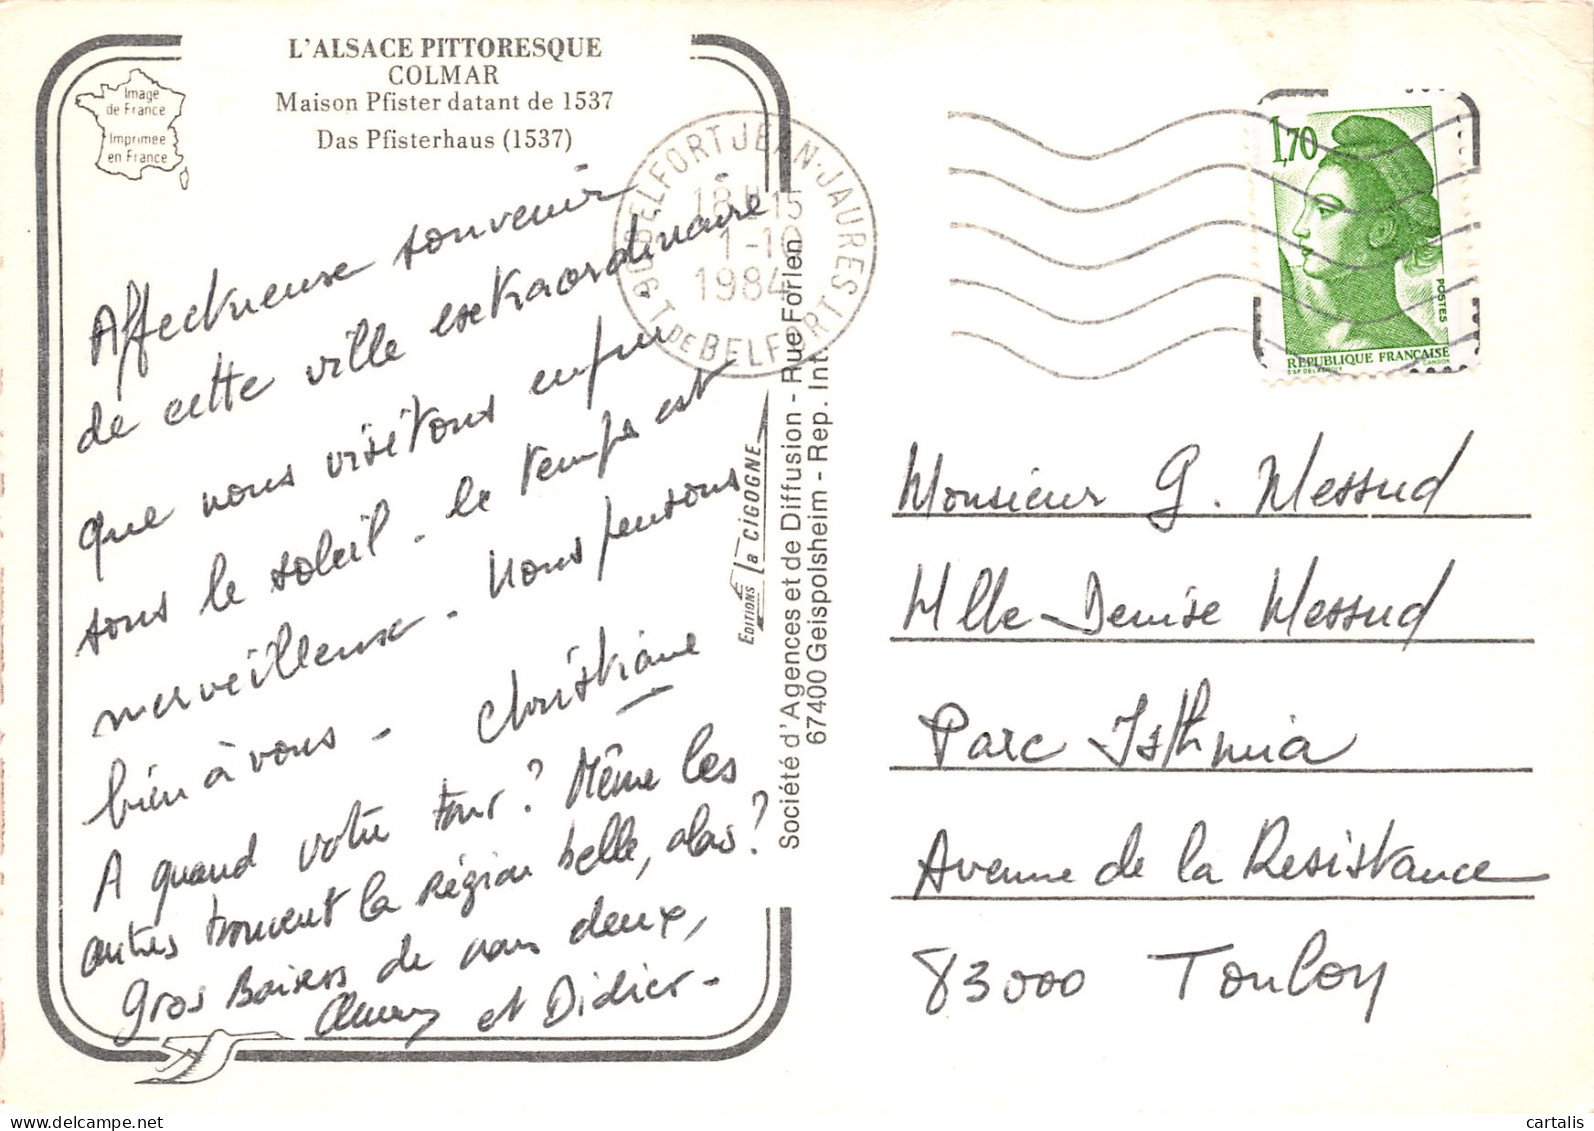 L'ALSACE PITTORESQUE
COLMAR
Maison Pfister datant de 1537
Das Pfisterhaus (1537)
Image
de France
Imprimée
en France
Affectueuse souvenir
de cette ville extraordinaire
que nous visitons enfin
sous le soleil - le temps est
merveilleuse - Nous pensons
bien à vous - Christiane
A quand votre tour ? Même les
autres trouvent la région belle, alas ?
Gros Baisers de nous deux,
et Didier -
90 BELFORT JEAN-JAURES
T. DE BELFORT
18H15
1-10
1984
EDITIONS la CIGOGNE
Société d'Agences et de Diffusion - Rue Forlen
67400 Geispolsheim - Rep. Int.
1,70
POSTES
REPUBLIQUE FRANÇAISE
D'AP DELACROIX
GANDON
Monsieur G. Messud
Mlle Denise Messud
Parc Isthmia
Avenue de la Resistance
83000 Toulon
delcampe.net
cartalis